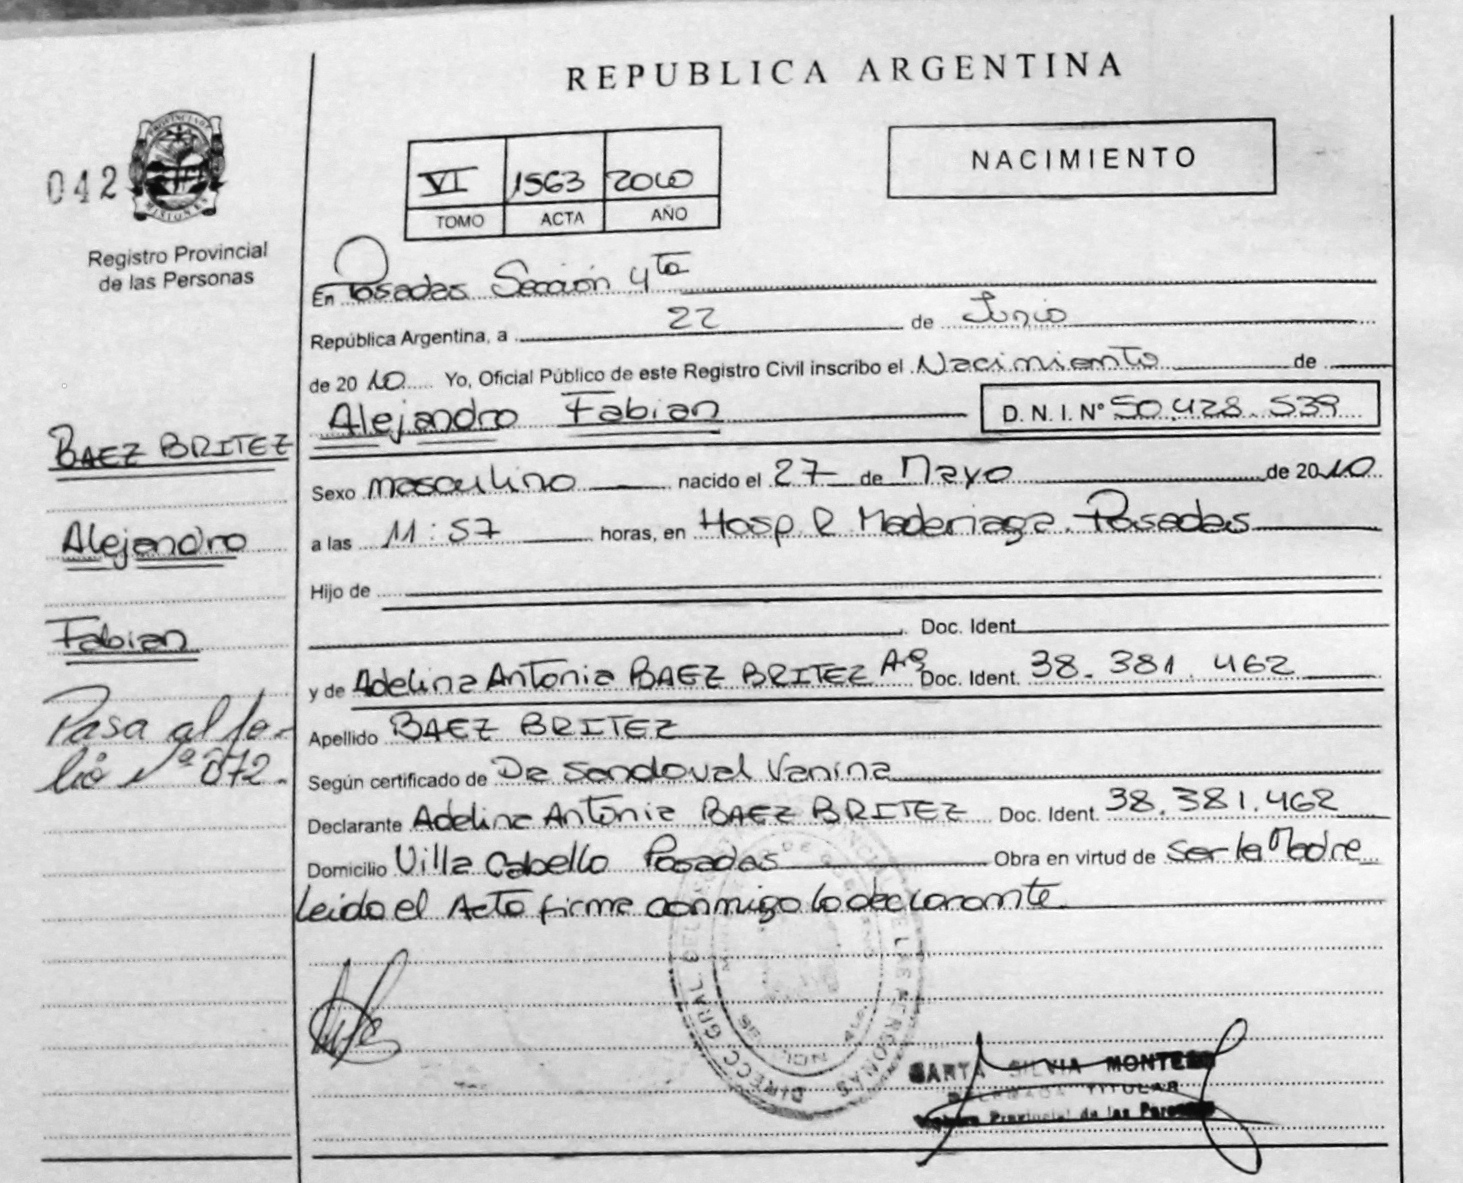 REPUBLICA ARGENTINA
042
PROVINCIA DE MISIONES
Registro Provincial
de las Personas
VI 1563 2010
TOMO ACTA AÑO
NACIMIENTO
En Posadas Sección 4ta
República Argentina, a 22 de Junio
de 2010 Yo, Oficial Público de este Registro Civil inscribo el Nacimiento de
Alejandro Fabian D. N. I. Nº 50.428.539
BAEZ BRITEZ
Alejandro
Fabian
Pasa al fo-
lio Nº 072.
Sexo masculino nacido el 27 de Mayo de 2010
a las 11:57 horas, en Hosp R Maderiaga. Posadas
Hijo de
Doc. Ident
y de Adelina Antonia BAEZ BRITEZ Arg Doc. Ident. 38.381.462
Apellido BAEZ BRITEZ
Según certificado de De Sandoval Vanina
Declarante Adelina Antonia BAEZ BRITEZ Doc. Ident. 38.381.462
Domicilio Villa Cabello Posadas Obra en virtud de ser la Madre
Leido el Acto firme conmigo la declarante
DIRECC GRAL DE LAS PERSONAS
SILVIA MONTE
TITULAR
Provincial de las Personas